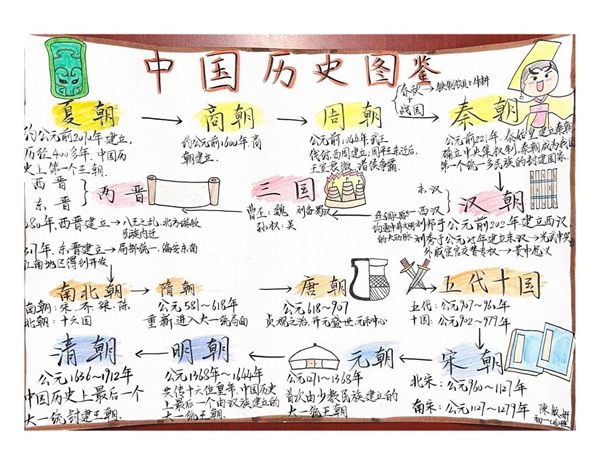 中国历史图鉴
夏朝 → 商朝 → 周朝 → 秦朝
春秋 → 铁制农具+牛耕
战国
约公元前2070年建立,
历经400多年,中国历
史上第一个王朝。
约公元前1600年商
朝建立。
公元前1046年武王
伐纣,西周建立;周平王东迁后,
王室衰微,诸侯争霸。
公元前221年,秦始皇建立秦朝
确立中央集权制,秦朝成为我国
第一个统一多民族的封建国家。
汉朝
东汉
西汉
刘邦于公元前202年建立西汉
刘秀于公元25年建立东汉 → 光武中兴
外戚宦官交替专权 → 黄巾起义
三国
曹丕:魏 刘备:蜀汉
孙权:吴
两晋
西晋
东晋
280年,西晋建立 → 八王之乱,北方游牧
民族内迁
317年,东晋建立 → 局部统一,偏安东南
江南地区得到开发
南北朝 → 隋朝 → 唐朝 → 五代十国
南朝:宋、齐、梁、陈
北朝:十六国
公元581~618年
重新进入大一统局面
公元618~907
贞观之治,开元盛世,
五代:公元907~960年
十国:公元902~979年
清朝 ← 明朝 ← 元朝 ← 宋朝
公元1636~1912年
中国历史上最后一个
大一统封建王朝。
公元1368年~1644年
共传十六位皇帝,中国历史
上最后一个由汉族建立的
大一统王朝。
公元1271~1368年
首次由少数民族建立的
大一统王朝
北宋:公元960~1127年
南宋:公元1127~1279年
陈
初一